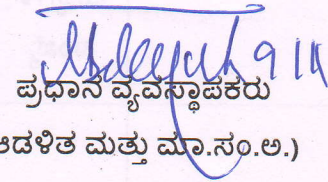 ಪ್ರಧಾನ ವ್ಯವಸ್ಥಾಪಕರು
ಆಡಳಿತ ಮತ್ತು ಮಾ.ಸಂ.ಅ.)